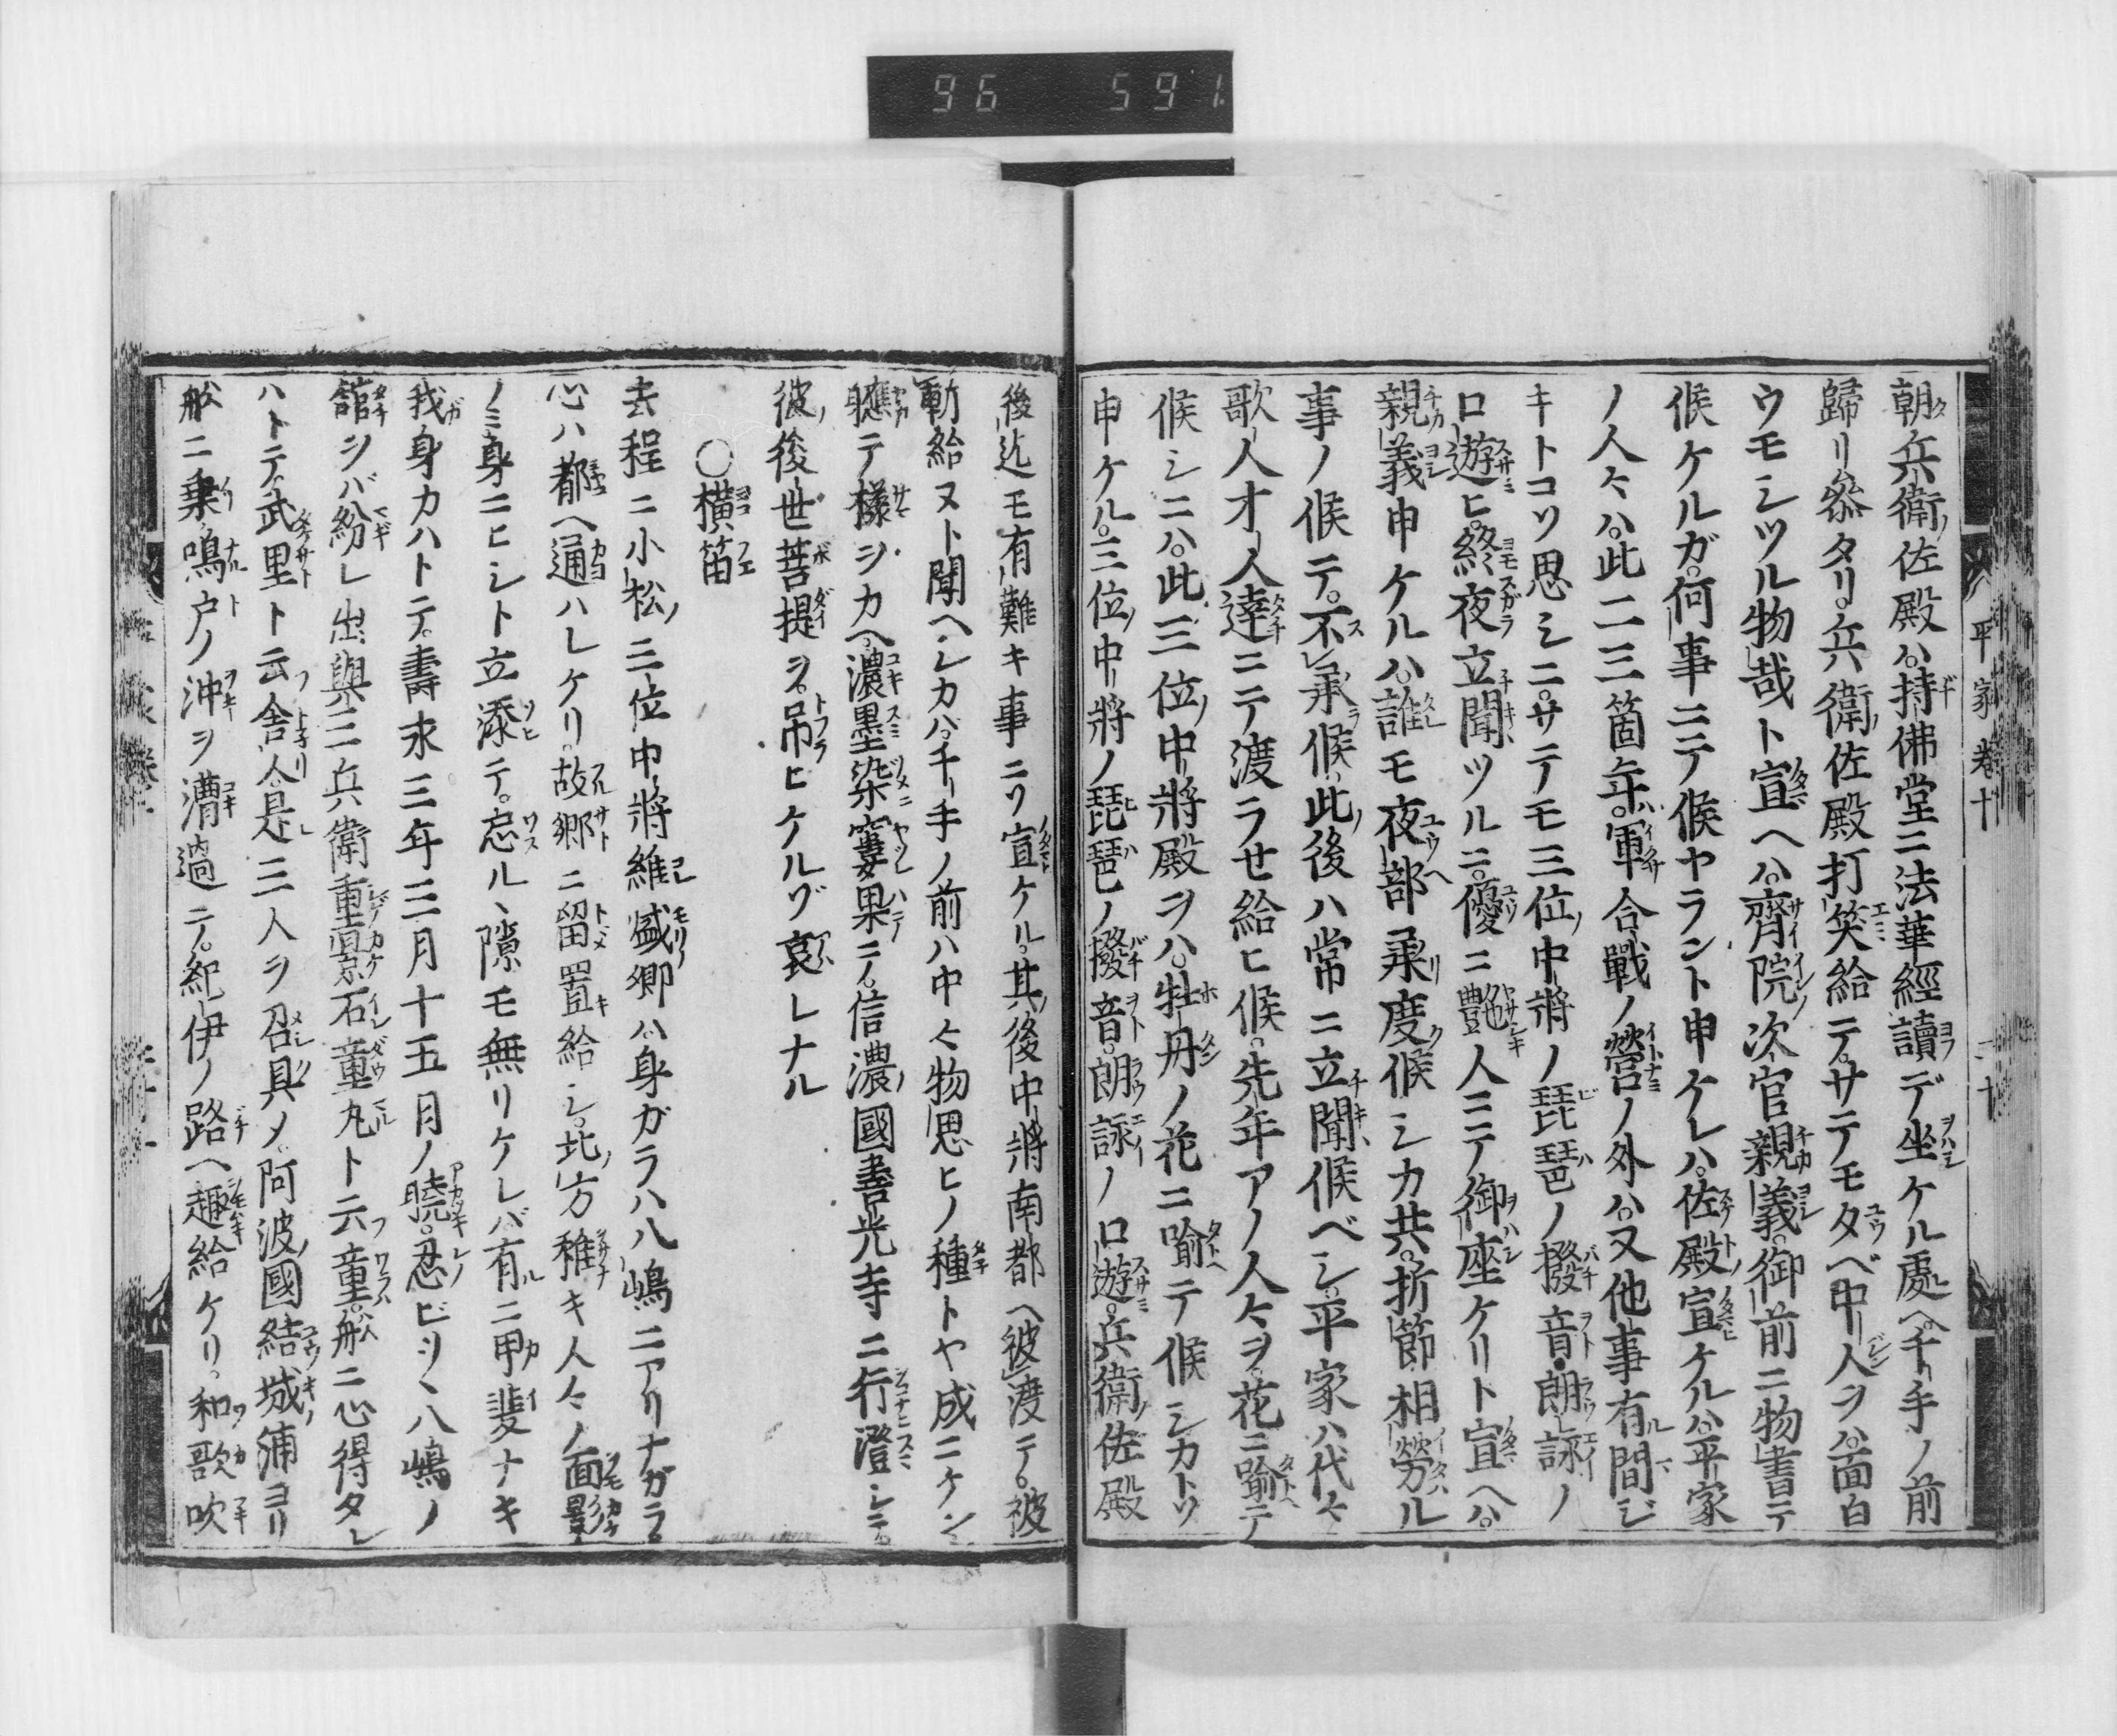 96 591
平家卷十 二十
朝兵衛佐殿ハ。持佛堂ニ法華經讀デ坐ケル處ヘ。千手ノ前
歸リ參タリ。兵衛佐殿打笑給テ。サテモタベ中人ヲハ。面白
ウモシツル物哉ト宣ヘハ。齊院次官親義。御前ニ物書テ
候ケルガ。何事ニテ候ヤラント申ケレハ。佐殿宣ケルハ。平家
ノ人々ハ。此二三箇年。軍合戰ノ營ノ外ハ。又他事有間ジ
キトコソ思シニ。サテモ三位中將ノ琵琶ノ撥音。朗詠ノ
口遊ヒ。終夜立聞ツルニ。優ニ艷人ニテ御座ケリト宣ヘハ。
親義申ケルハ。誰モ夜部承度候シカ共。折節相勞ル
事ノ候テ。不承候。此後ハ常ニ立聞候ベシ。平家ハ代々
歌人才人達ニテ渡ラせ給ヒ候。先年アノ人々ヲ。花ニ喩テ
候シニハ。此三位中將殿ヲハ。牡丹ノ花ニ喩テ候シカトソ
申ケル。三位中將ノ琵琶ノ撥音。朗詠ノ口遊。兵衛佐殿
後迄モ有難キ事ニソ宣ケル。其後中將南都ヘ彼渡テ。被
斬給ヌト聞ヘシカハ。千手ノ前ハ中々物思ヒノ種トヤ成ニケン。
軈テ樣ヲカヘ。濃墨染窶果テ。信濃國善光寺ニ行澄シテ。
彼後世菩提ヲ。吊ヒケルゾ哀レナル
○橫笛
去程ニ小松三位中將維盛卿ハ。身ガラハ八嶋ニアリナガラ。
心ハ都ヘ通ハレケリ。故郷ニ留置給シ。北方稚キ人々ノ面影
ノミ身ニヒシト立添テ。忘ルヽ隙モ無リケレバ。有ニ甲斐ナキ
我身カハトテ。壽永三年三月十五月ノ曉。忍ビツヽ八嶋ノ
舘ヲバ紛レ出。與三兵衛重景。石童丸ト云童。舩ニ心得タレ
ハトテ。武里ト云舎人。是三人ヲ召具メ。阿波國結城浦ヨリ
舩ニ乗。鳴戸ノ沖ヲ漕過テ。紀伊ノ路ヘ趣給ケリ。和歌吹